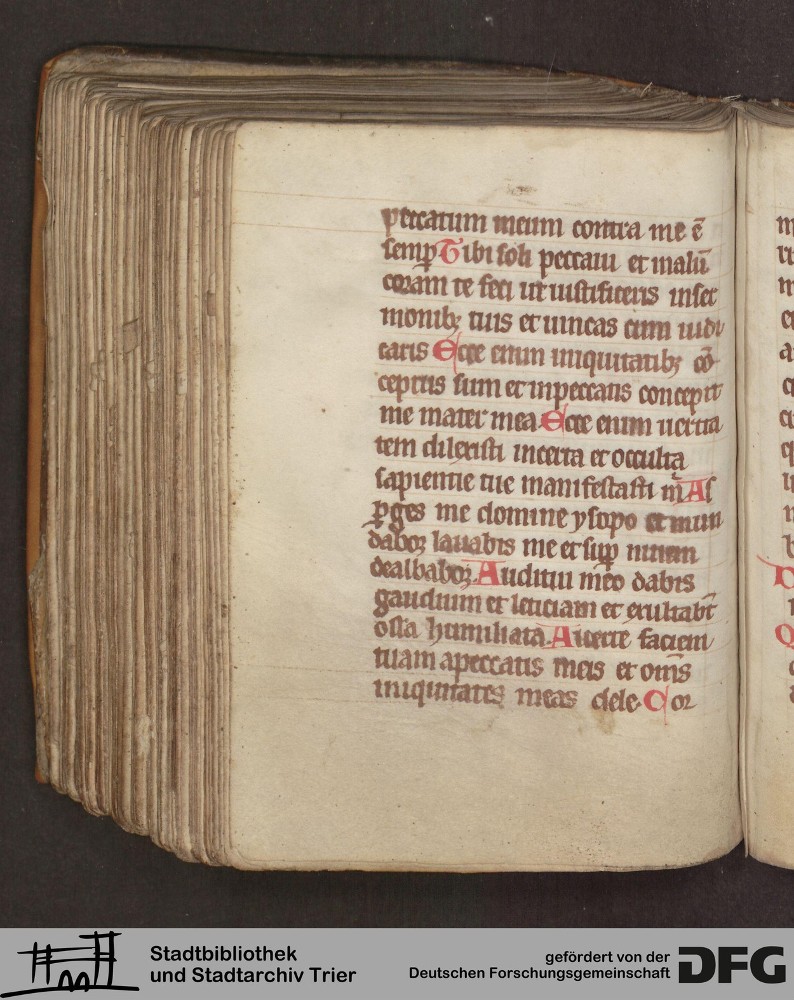 peccatum meum contra me ē
semꝑ Tibi soli peccaui et malū
coram te feci ut iustificeris in ser
monibꝫ tuis et uincas cum iudi
caris Ecce enim iniquitatibꝫ cō
ceptus sum et in peccatis concepit
me mater mea Ecce enim uerita
tem dilexisti incerta et occulta
sapientie tue manifestasti m As
ꝑges me domine ysopo et mun
daboꝛ lauabis me et suꝑ niuem
dealbaboꝛ Auditui meo dabis
gaudium et leticiam et exultabt
ossa humiliata. Auerte faciem
tuam a peccatis meis et om̄s
iniquitates meas dele. Cor
Stadtbibliothek
und Stadtarchiv Trier
gefördert von der
Deutschen Forschungsgemeinschaft
DFG